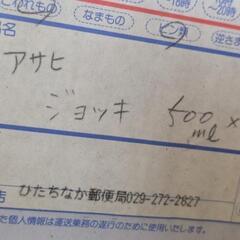 こわれもの なまもの ビン類 逆さま
名
アサヒ
ジョッキ 500 ×
ml
店 ひたちなか郵便局029-272-2827
た個人情報は運送業務の遂行のために使用いたします。